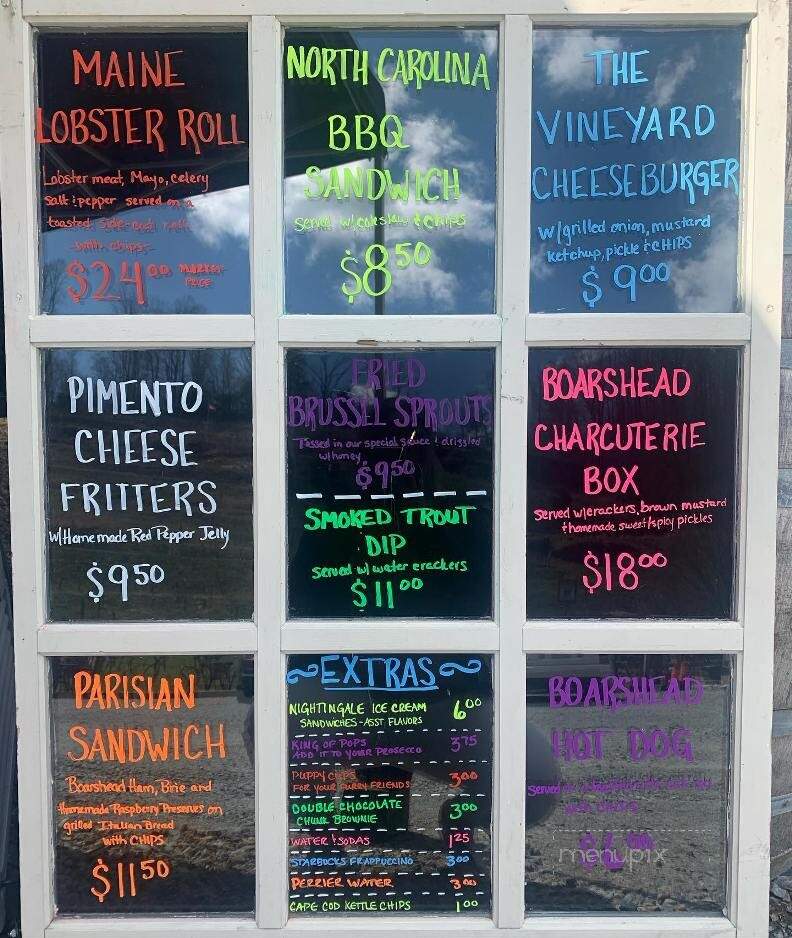 MAINE
LOBSTER ROLL
Lobster meat, Mayo, celery
salt & pepper served on a
toasted side-cut roll
with chips-
$24.00 MARKET
PRICE
NORTH CAROLINA
BBQ
SANDWICH
Served w/coleslaw & chips
$8.50
THE
VINEYARD
CHEESEBURGER
w/grilled onion, mustard
ketchup, pickle & CHIPS
$9.00
PIMENTO
CHEESE
FRITTERS
w/Homemade Red Pepper Jelly
$9.50
FRIED
BRUSSEL SPROUTS
Tossed in our special sauce & drizzled
w/honey
$9.50
SMOKED TROUT
DIP
Served w/ water crackers
$11.00
BOARSHEAD
CHARCUTERIE
BOX
Served w/crackers, brown mustard
& homemade sweet/spicy pickles
$18.00
PARISIAN
SANDWICH
Boarshead Ham, Brie and
Homemade Raspberry Preserves on
grilled Italian Bread
with CHIPS
$11.50
~EXTRAS~
NIGHTINGALE ICE CREAM 6.00
SANDWICHES - ASST FLAVORS
KING OF POPS 3.75
ADD IT TO YOUR PROSECCO
PUPPY CUPS 3.00
FOR YOUR FURRY FRIENDS
DOUBLE CHOCOLATE 3.00
CHUNK BROWNIE
WATER & SODAS 1.25
STARBUCKS FRAPPUCCINO 3.00
PERRIER WATER 3.00
CAPE COD KETTLE CHIPS 1.00
BOARSHEAD
HOT DOG
Served on
with CHIPS
menupix